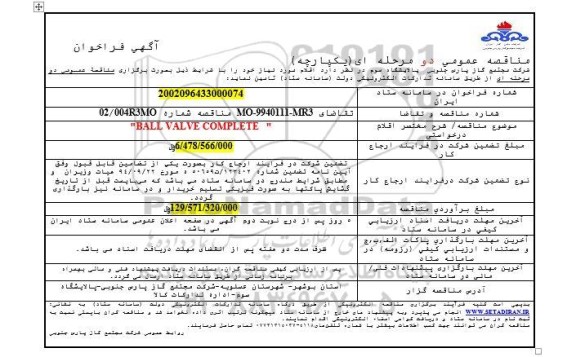 آگهي فراخوان
مناقصه عمومي دو مرحله اي(يكپارچه)
شركت مجتمع گاز پارس جنوبي پالايشگاه سوم در نظر دارد اقلام مورد نياز خود را با شرايط ذيل بصورت برگزاري مناقصه عمومي دو
مرحله اي از طريق سامانه تداركات الكترونيكي دولت (سامانه ستاد) تامين نمايد:
شماره فراخوان در سامانه ستاد ايران
2002096433000074
شماره مناقصه و تقاضا
تقاضاي MO-9940111-MR3 مناقصه شماره 02/004R3MO
موضوع مناقصه/ شرح مختصر اقلام درخواستي
"BALL VALVE COMPLETE "
مبلغ تضمين شركت در فرايند ارجاع كار
6/478/566/000ريال
نوع تضمين شركت درفرايند ارجاع كار
تضمين شركت در فرايند ارجاع كار بصورت يكي از تضامين قابل قبول وفق
آيين نامه تضمين شماره مورخ 94/09/22 هيات وزيران و
مطابق شرايط مندرج در سامانه ستاد مي باشد كه ميبايست قبل از تاريخ
گشايش پاكتها به صورت فيزيكي تسليم خريدار و در سامانه نيز بارگذاري
گردد.
مبلغ برآوردي مناقصه
129/571/320/000ريال
آخرين مهلت دريافت اسناد ارزيابي كيفي در سامانه ستاد
5 روز پس از درج نوبت دوم آگهي در صفحه اعلان عمومي سامانه ستاد ايران
مي باشد.
آخرين مهلت بارگذاري پاكات الف،ب،ج و مستندات ارزيابي كيفي (رزومه) در سامانه ستاد
ظرف مدت دو هفته پس از انقضاي مهلت دريافت اسناد مي باشد.
آخرين مهلت بارگزاري پيشنهادات فني/ مالي در سامانه ستاد
پس از ارزيابي كيفي مناقصه گران، مستندات دريافت پيشنهاد فني و مالي بهمراه
برنامه زماني از طريق سامانه ستاد ارسال مي گردد.
آدرس مناقصه گزار
استان بوشهر- شهرستان عسلويه-شركت مجتمع گاز پارس جنوبي-پالايشگاه
سوم-اداره تداركات كالا
WWW.SETADIRAN.IR
روابط عمومي شركت مجتمع گاز پارس جنوبي